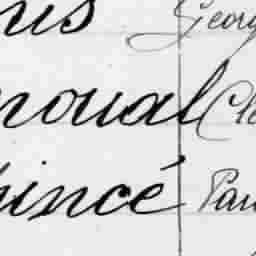 nis Georg
noual Cle
hincé Pau